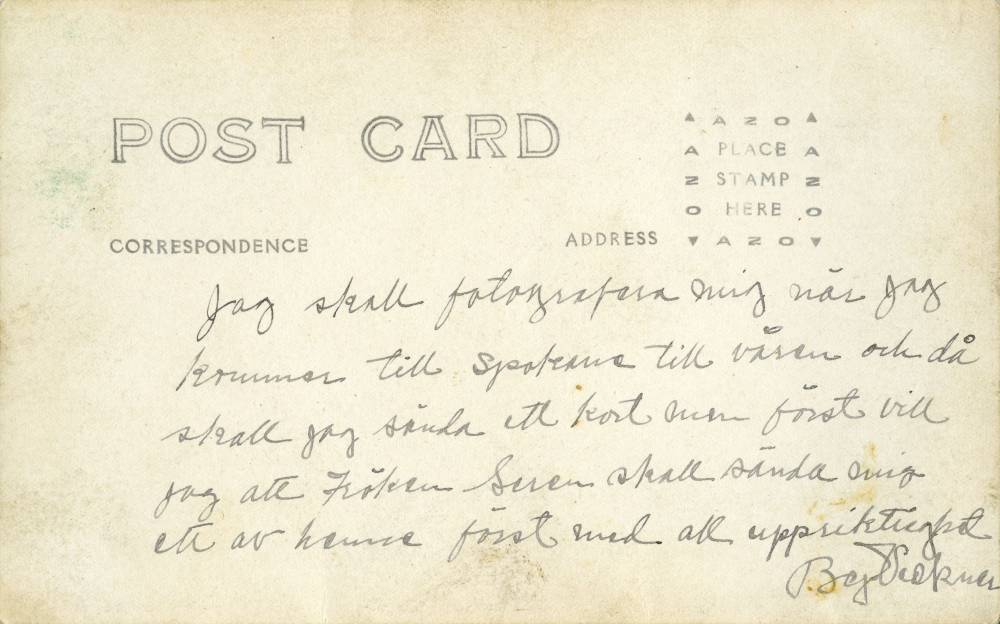 POST CARD
▲ A Z O ▲
A PLACE A
Z STAMP Z
O HERE O
▼ A Z O ▼
CORRESPONDENCE
ADDRESS
Jag skall fotografera mig när jag
kommer till Spokane till våren och då
skall jag sända ett kort men först vill
jag att Fröken Seren skall sända mig
ett av henne först med all uppriktighet